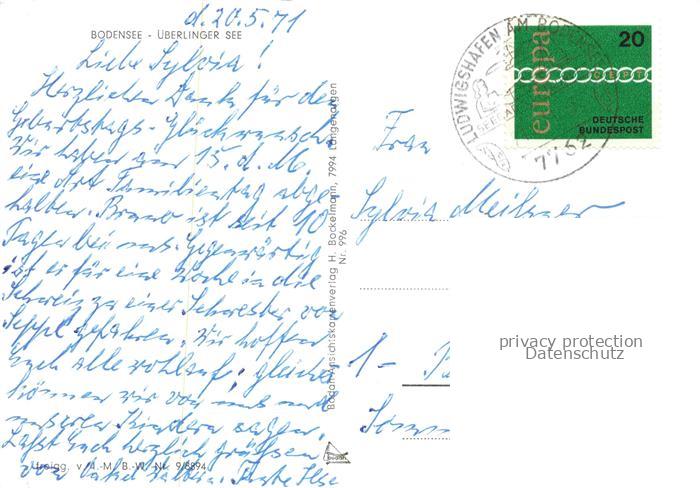 d. 20.5.71
BODENSEE - ÜBERLINGER SEE
Liebe Sylvia!
Herzlichen Dank für die
Geburtstags-Glückwünsche
Wir haben am 15. d. M.
eine Art Familientag abge
halten. Bruno ist seit 10
Tagen bei uns. Gegenwärtig
ist er für eine Woche in die
Schweiz zu einer Schwester von
Seppl gefahren. Wir hoffen
Euch alle wohlauf, gleiches
können wir von uns und
unseren Kindern sagen.
Laßt Euch herzlich grüßen
von Onkel Tante Ilse
Freigg. v. I.-M. B.-W. Nr. 9/8894
Bodan-Ansichtskartenverlag H. Bockelmann, 7994 Langenargen
Nr. 996
LUDWIGSHAFEN AM BODENSEE
7752
europa
20
CEPT
DEUTSCHE
BUNDESPOST
Frau
Sylvia Meißner
1 -
privacy protection
Datenschutz